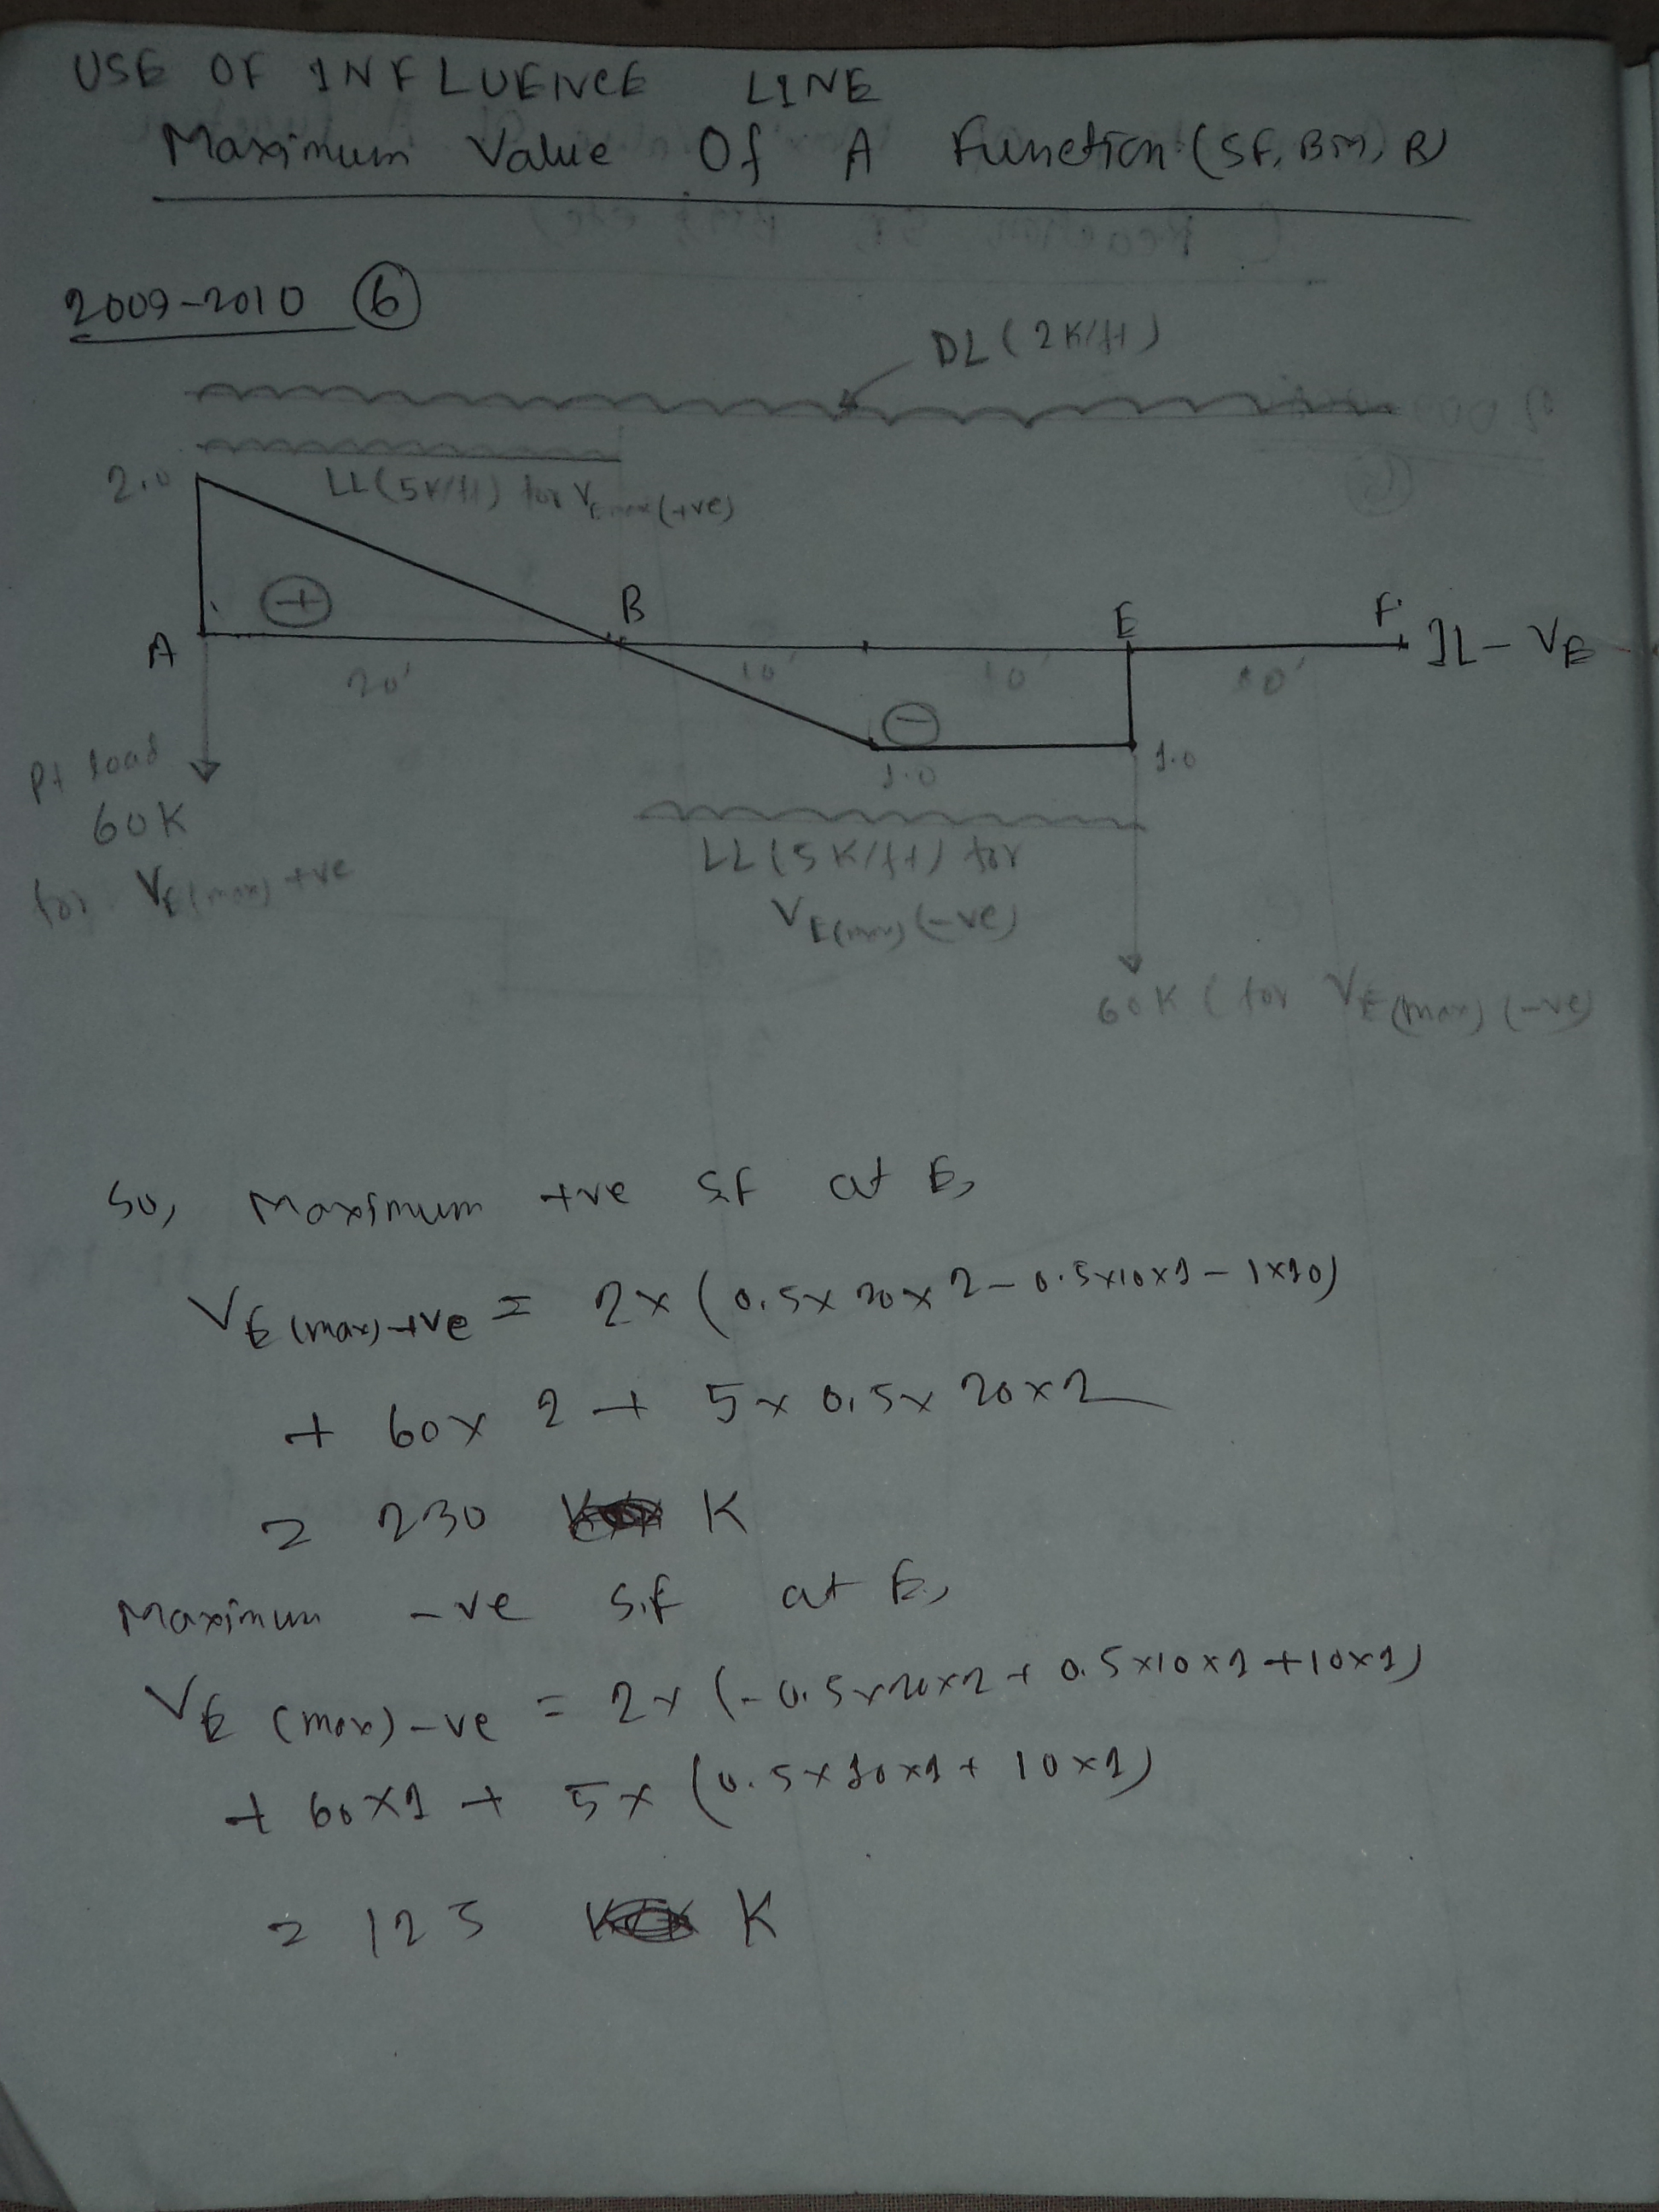 USE OF INFLUENCE LINE
Maximum Value Of A Function (SF, BM, R)
2009-2010 (6)
DL (2K/ft)
2.0
LL (5K/ft) for VE max (+ve)
+
A
B
E
F
IL - VE
20'
10'
10'
10'
-
1.0
1.0
Pt load
60K
for VE(max) +ve
LL (5K/ft) for
VE(max) (-ve)
60K (for VE(max) (-ve)
So, Maximum +ve S.F at E,
VE (max) +ve = 2x (0.5x 20x 2 - 0.5x10x1 - 1x10)
+ 60x 2 + 5 x 0.5x 20x2
= 230 K
Maximum -ve S.F at E,
VE (max) -ve = 2x (-0.5x20x2 + 0.5x10x1 + 10x1)
+ 60x1 + 5x (0.5x10x1 + 10x1)
= 125 K